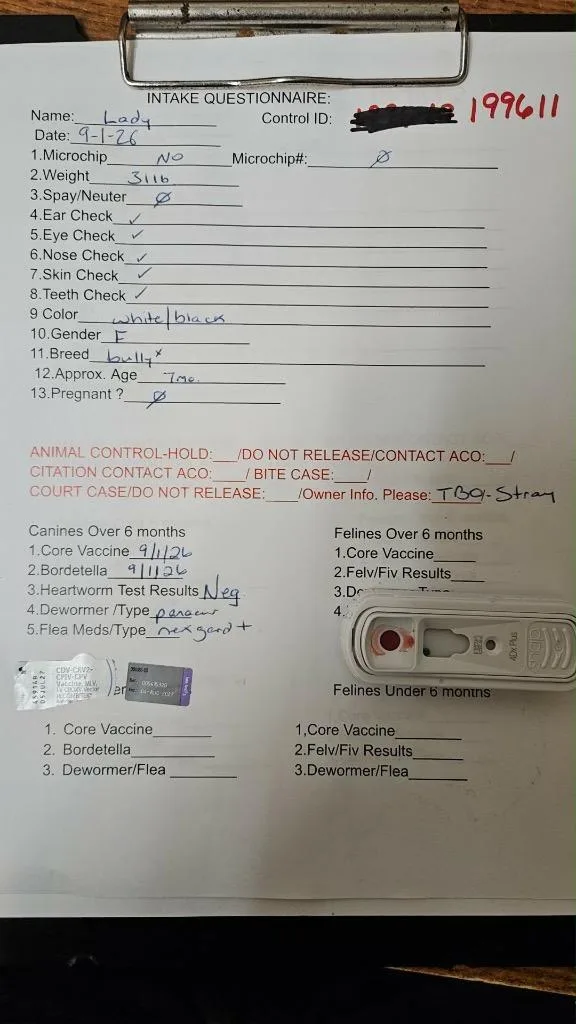 INTAKE QUESTIONNAIRE:
Name: Lady Control ID: 199611
Date: 9-1-26
1.Microchip NO Microchip#: Ø
2.Weight 31lb
3.Spay/Neuter Ø
4.Ear Check ✓
5.Eye Check ✓
6.Nose Check ✓
7.Skin Check ✓
8.Teeth Check ✓
9 Color white/black
10.Gender F
11.Breed bully x
12.Approx. Age 7mo.
13.Pregnant ? Ø
ANIMAL CONTROL-HOLD:___/DO NOT RELEASE/CONTACT ACO:___/
CITATION CONTACT ACO:____/ BITE CASE:____/
COURT CASE/DO NOT RELEASE:____/Owner Info. Please: TBO/-Stray
Canines Over 6 months
1.Core Vaccine 9/1/26
2.Bordetella 9/1/26
3.Heartworm Test Results Neg
4.Dewormer /Type panacur
5.Flea Meds/Type nexgard +
Felines Over 6 months
1.Core Vaccine
2.Felv/Fiv Results
3.
4.
4Dx Plus
CDV-CAV2-
CPIV-CPV
Vaccine, MLV,
05JUL27
Felines Under 6 months
1. Core Vaccine
2. Bordetella
3. Dewormer/Flea
1,Core Vaccine
2.Felv/Fiv Results
3.Dewormer/Flea